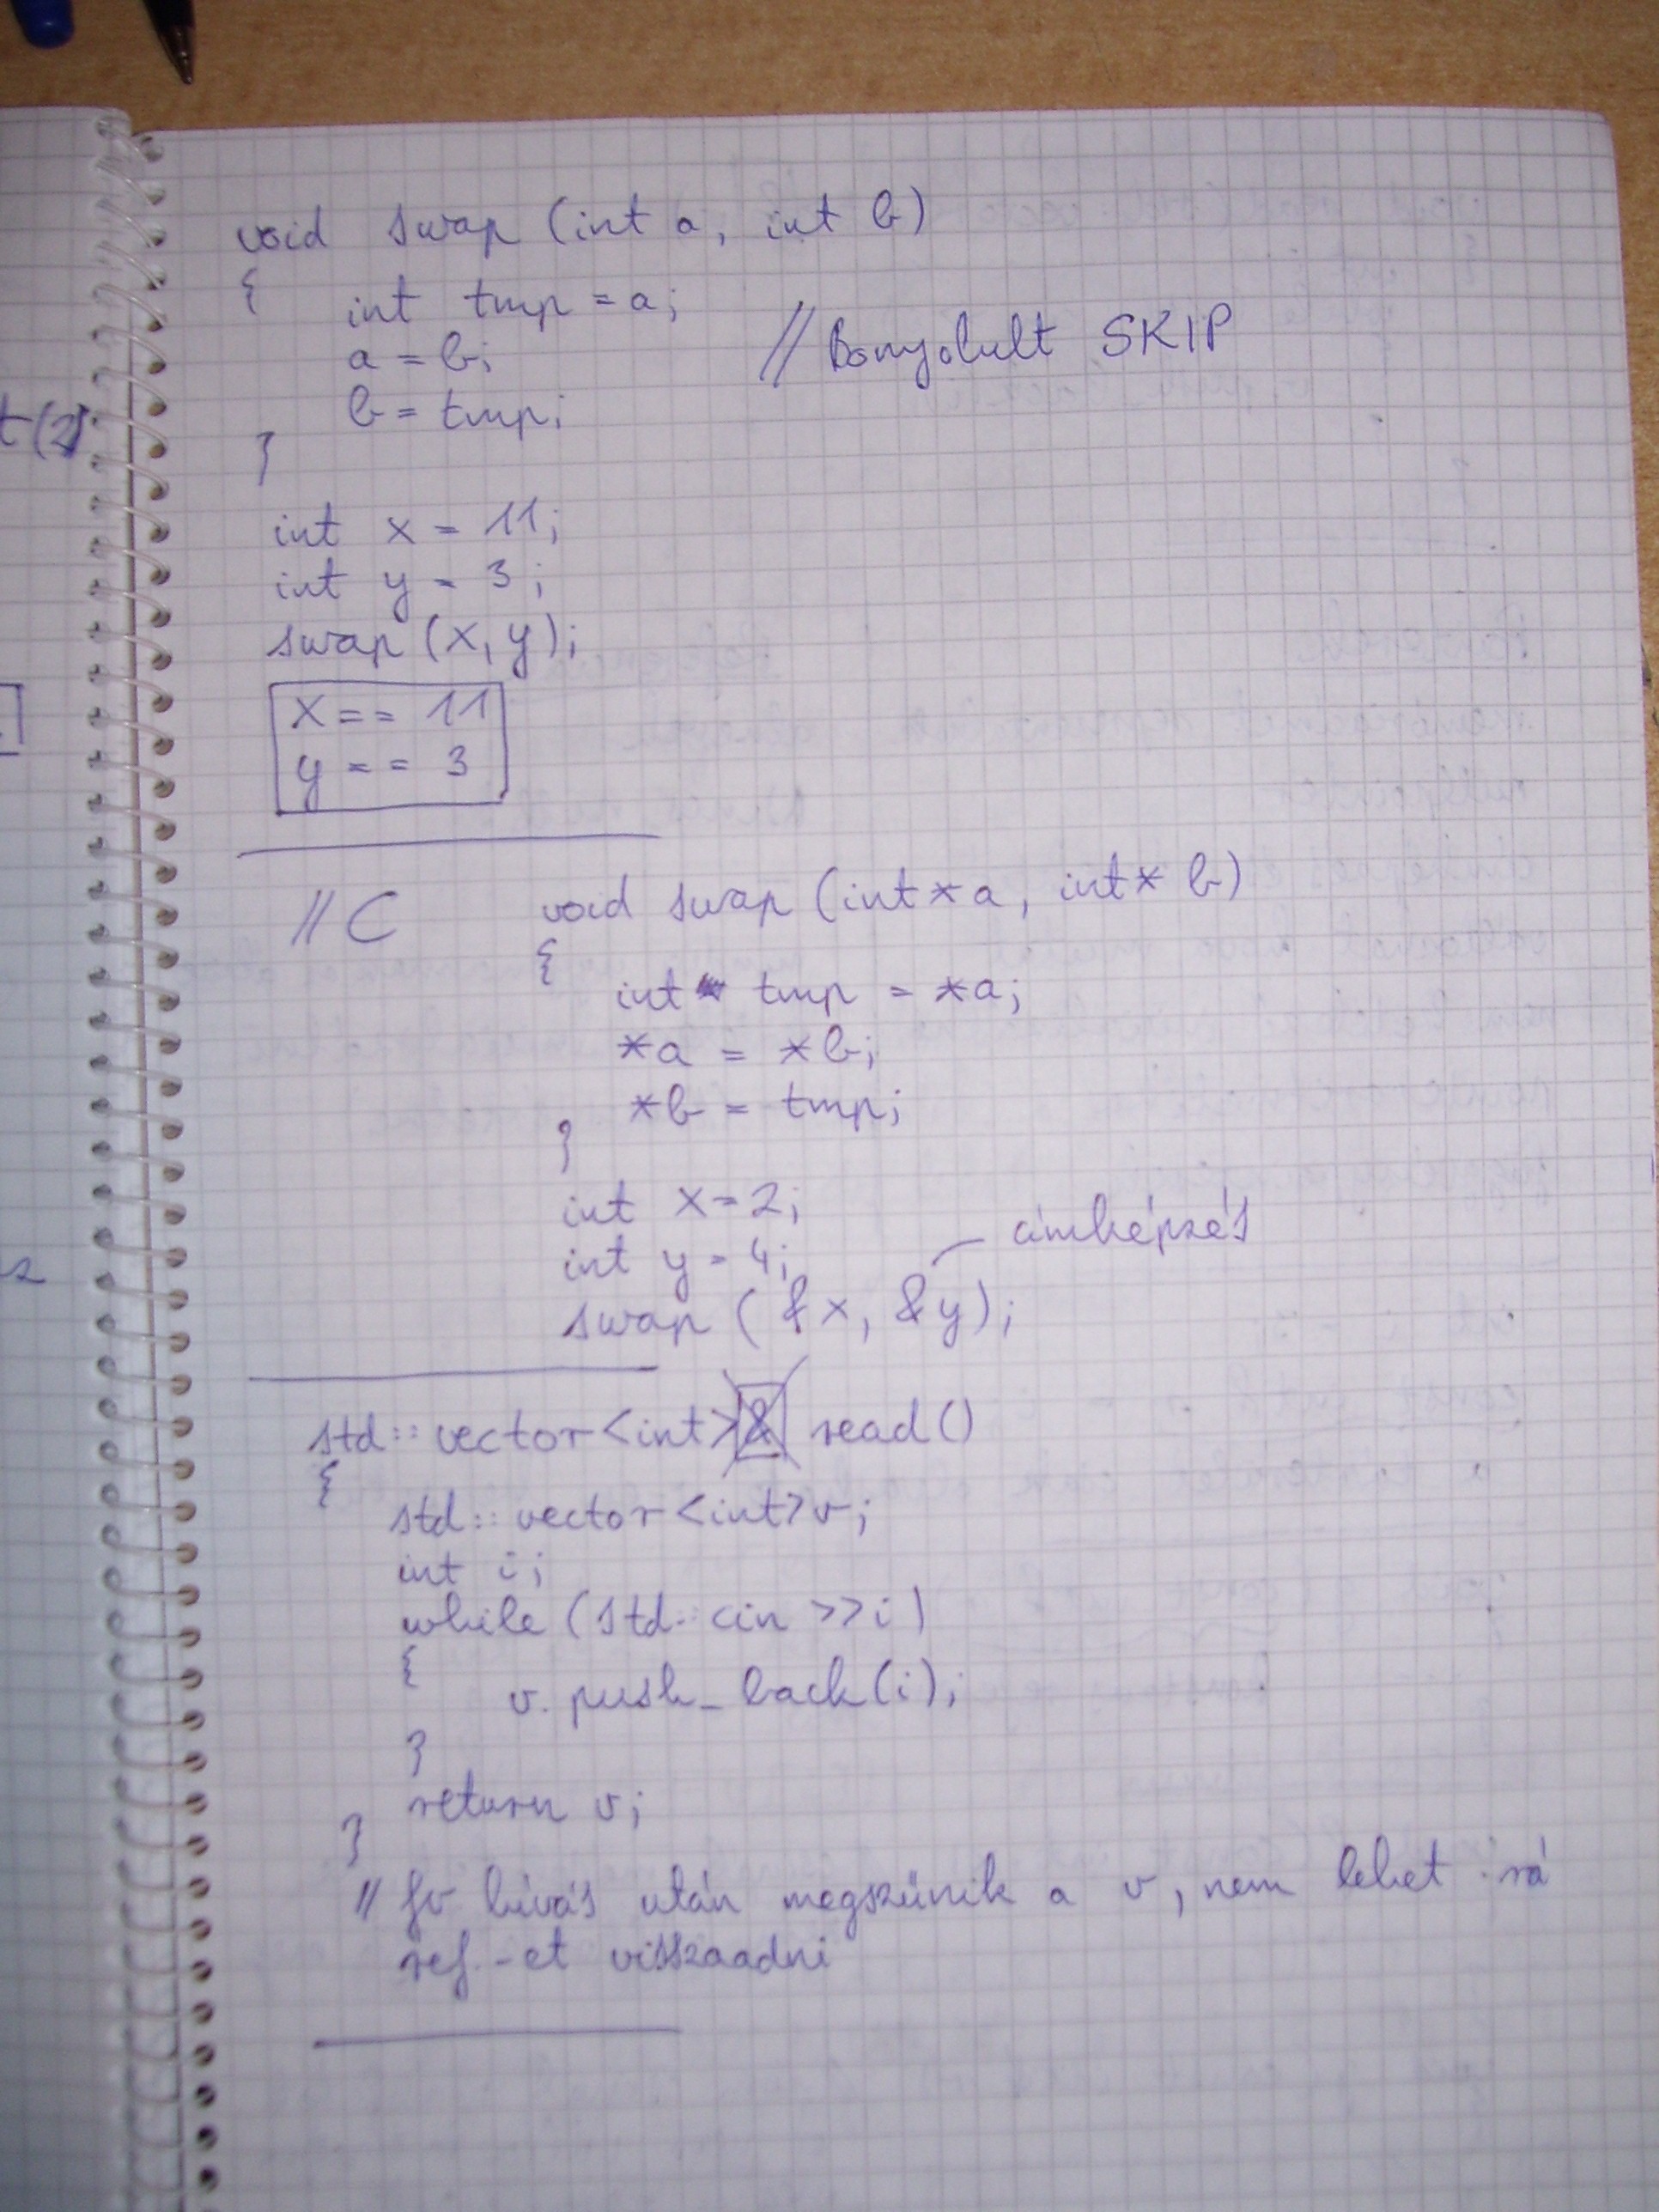 void swap (int a, int b)
{
int tmp = a;
a = b;
// Bonyolult SKIP
b = tmp;
}
int x = 11;
int y = 3;
swap (x, y);
x == 11
y == 3
// C
void swap (int* a, int* b)
{
int tmp = *a;
*a = *b;
*b = tmp;
}
int x = 2;
int y = 4;
címképzés
swap (&x, &y);
std::vector<int>& read()
{
std::vector<int> v;
int i;
while (std::cin >> i)
{
v.push_back(i);
}
return v;
}
// fv hívás után megszűnik a v, nem lehet rá
ref.-et visszaadni
t(2)